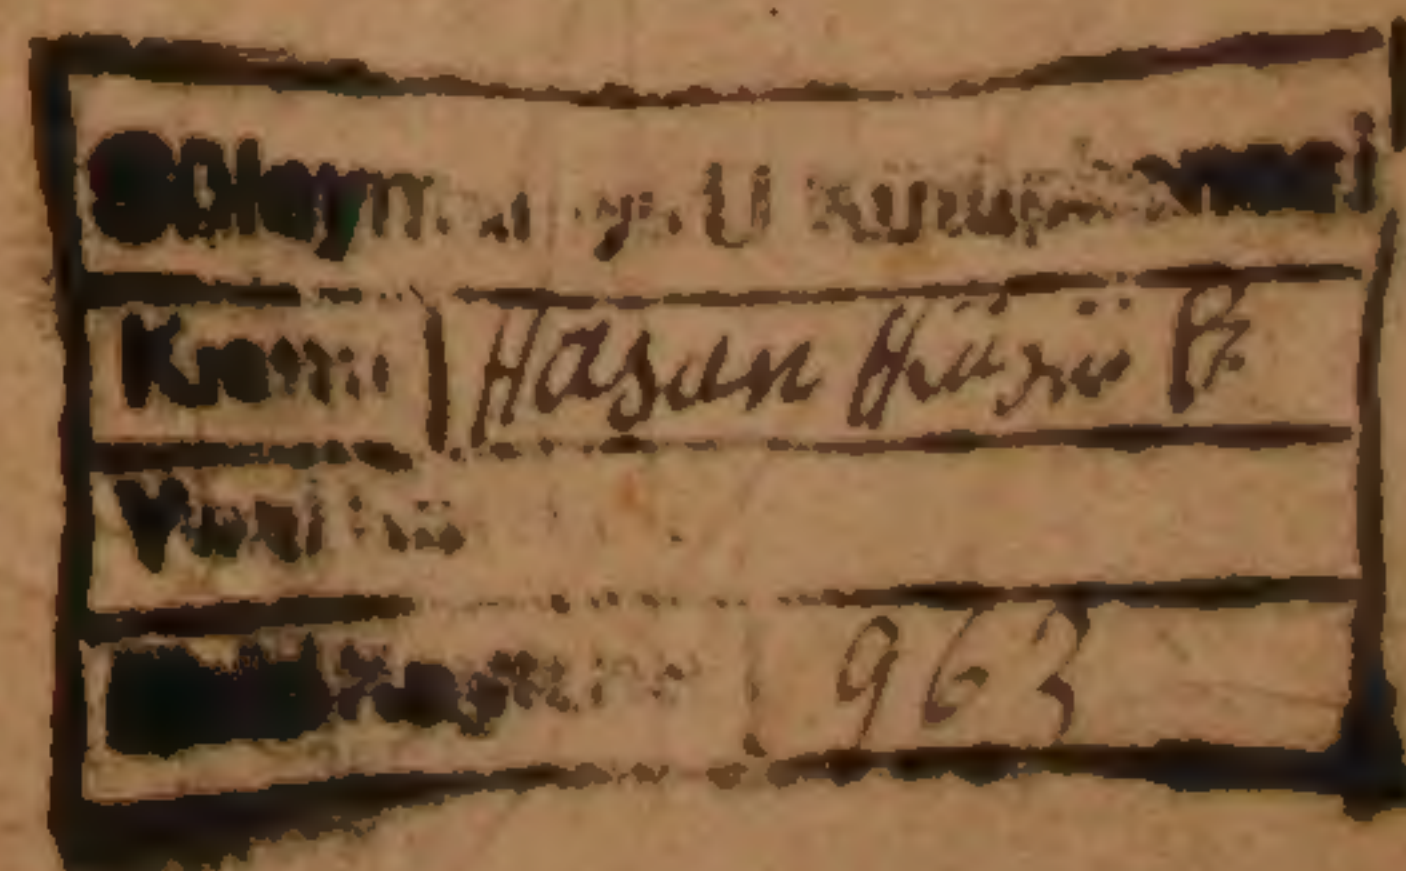 Süleymaniye U Kütüphanesi
Kısmı Hasan Hüsnü Pş
Yeni
Eski Kayıt No 963